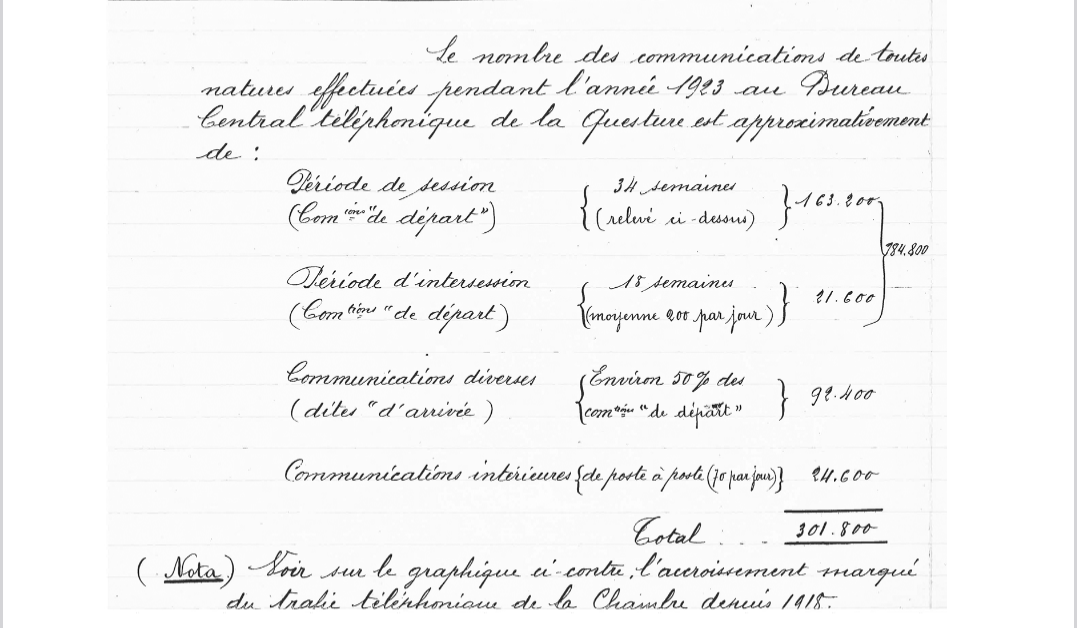 Le nombre des communications de toutes
natures effectuées pendant l'année 1923 au Bureau
Central téléphonique de la Questure est approximativement
de :
Période de session { 34 semaines } 163.200
(Com^ions "de départ") (relevé ci-dessus)
184.800
Période d'intersession { 18 semaines } 21.600
(Com^tions "de départ) (moyenne 200 par jour)
Communications diverses { Environ 50% des } 92.400
(dites "d'arrivée) com^tions "de départ"
Communications intérieures {de poste à poste (70 par jour)} 24.600
Total . . . 301.800
(Nota) Voir sur le graphique ci-contre, l'accroissement marqué
du trafic téléphonique de la Chambre depuis 1918.